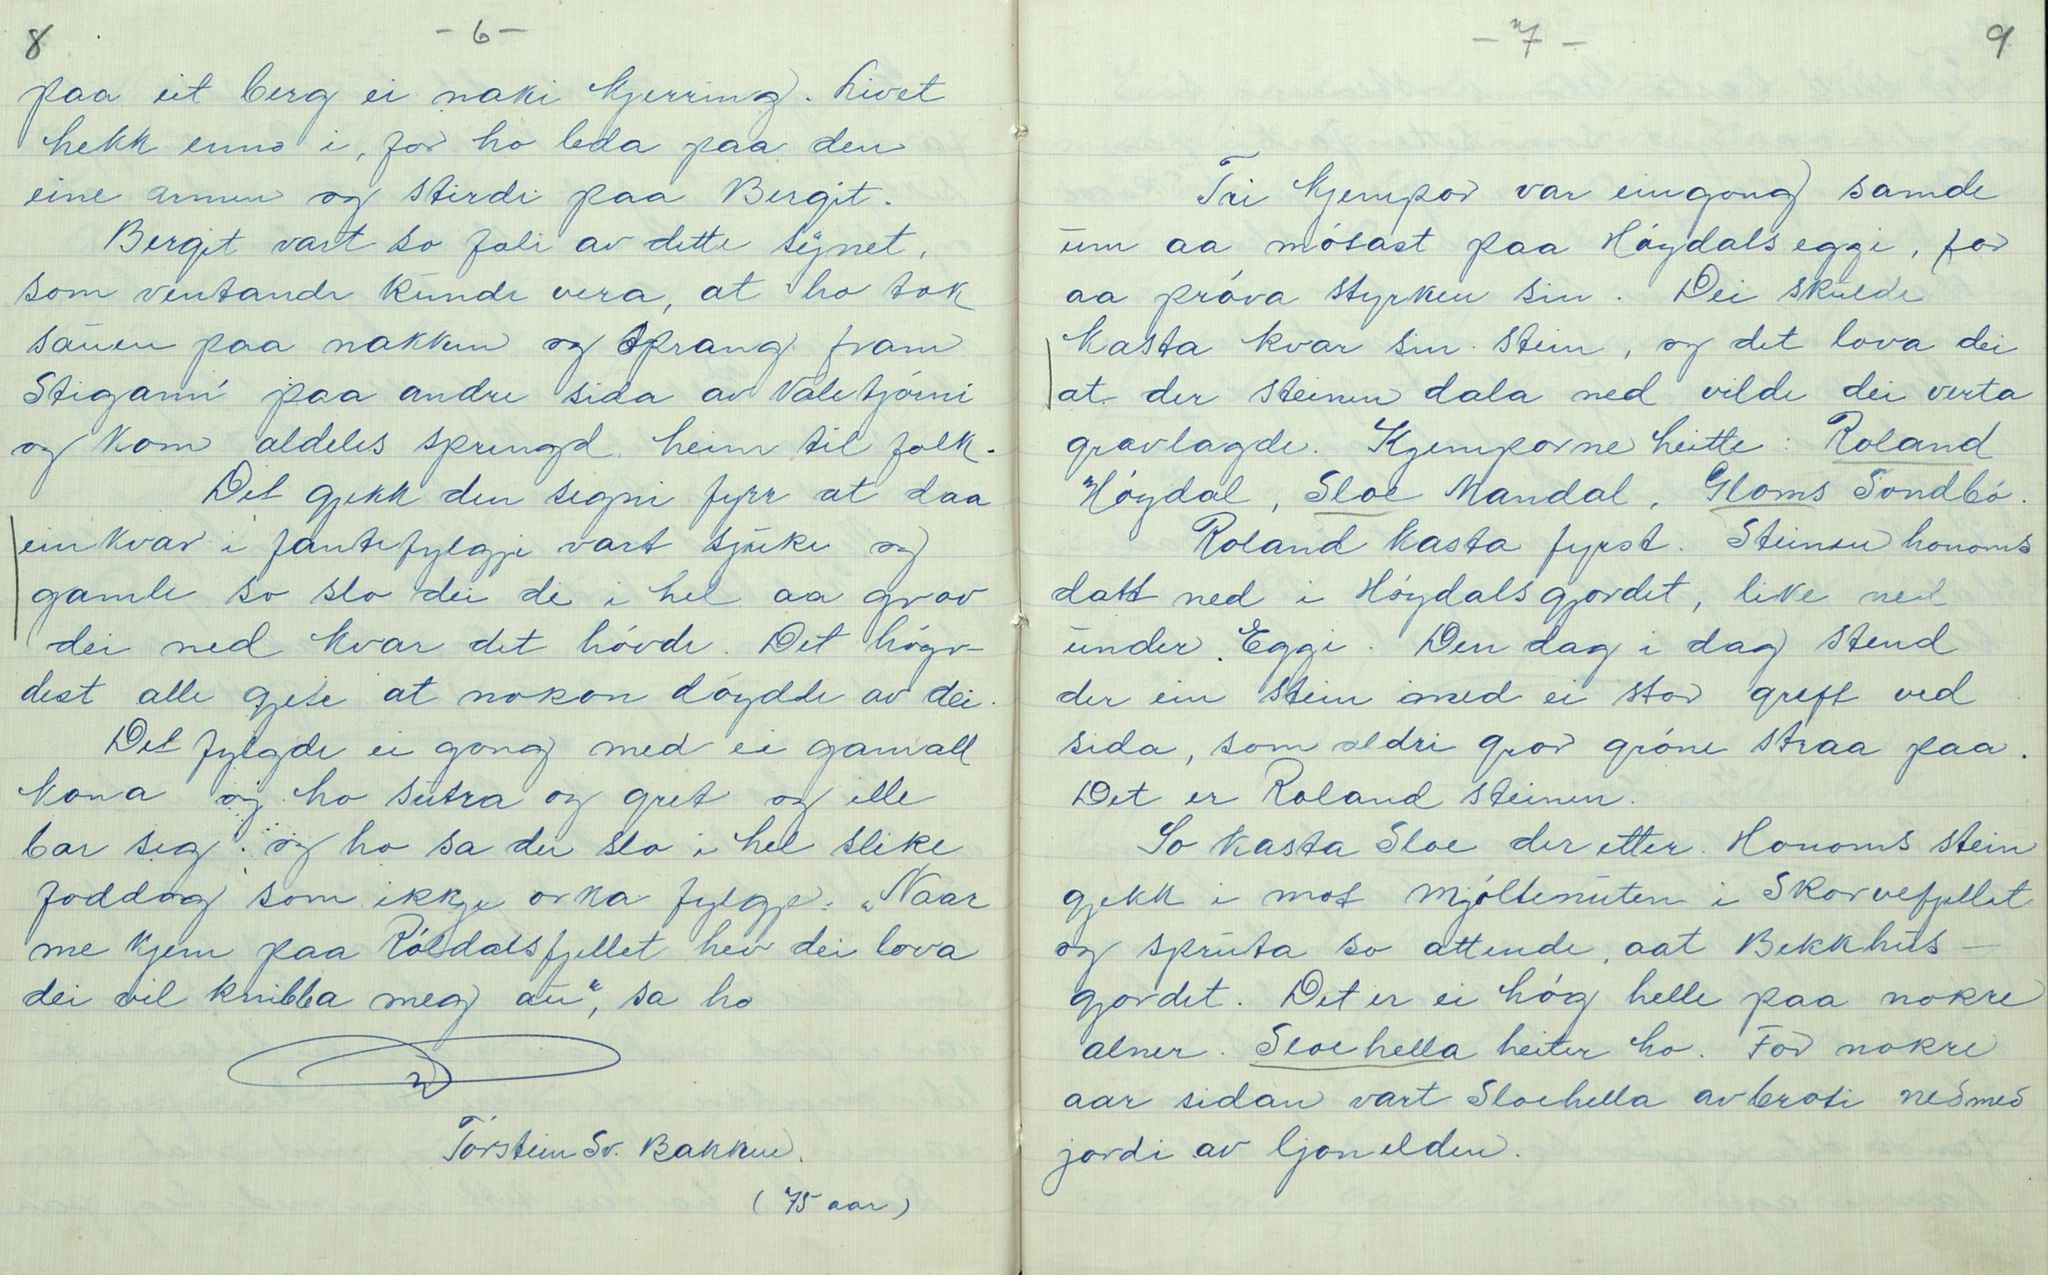 8
- 6 -
paa eit berg ei naki kjerring. Livet
hekk enno i, for ho leda paa den
eine armen og stirdi paa Bergit.
Bergit vart so fæli av dette synet,
som ventande kunde vera, at ho tok
sauen paa nakken og sprang fram
Stigann' paa andre sida av Valetjørni
og kom aldeles sprengd heim til folk.
Det gjekk den segni fyrr at daa
einkvar i fantefylgje vart sjuke og
gamle so slo dei de i hel aa grov
dei ned kvar det høvde. Det høyr-
dest alle gjete at nokon døydde av dei.
Det fylgde ei gong med ei gamall
kona og ho sutra og gret og ille
bar seg. og ho sa dei slo i hel slike
foddog som ikkje orka fylgje. „Naar
me kjem paa Røldalsfjellet hev dei lova
dei vil knibba meg au", sa ho
Torstein Sv. Bakken.
(75 aar)
- 7 -
9
Tri kjempor var eingong samde
um aa møtast paa Høydalseggi, for
aa prøva styrken sin. Dei skulde
kasta kvar sin stein, og det lova dei
at der steinen dala ned vilde dei verta
gravlagde. Kjemporne heitte: Roland
Høydal, Sloe Mandal, Gloms Tondbø.
Roland kasta fyrst. Steinen honoms
datt ned i Høydalsgjordet, like ned
under Eggi. Den dag i dag stend
der ein stein med ei stor greft ved
sida, som aldri gror grøne straa paa.
Det er Roland steinen.
So kasta Sloe der etter. Honoms stein
gjekk i mot Mjøltenuten i Skorvefjellet
og spruta so attende, aat Bekkhus-
gjordet. Det er ei høg helle paa nokre
alner. Sloehella heiter ho. For nokre
aar sidan vart Sloehella avbroti nedmed
jordi av ljonelden.